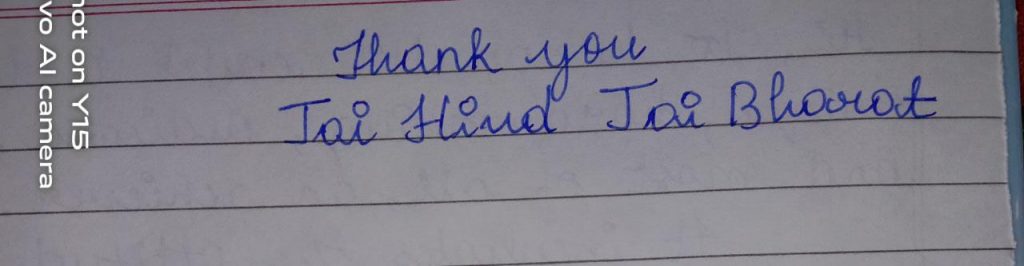 Thank you
Jai Hind Jai Bharat
hot on Y15
vo AI camera